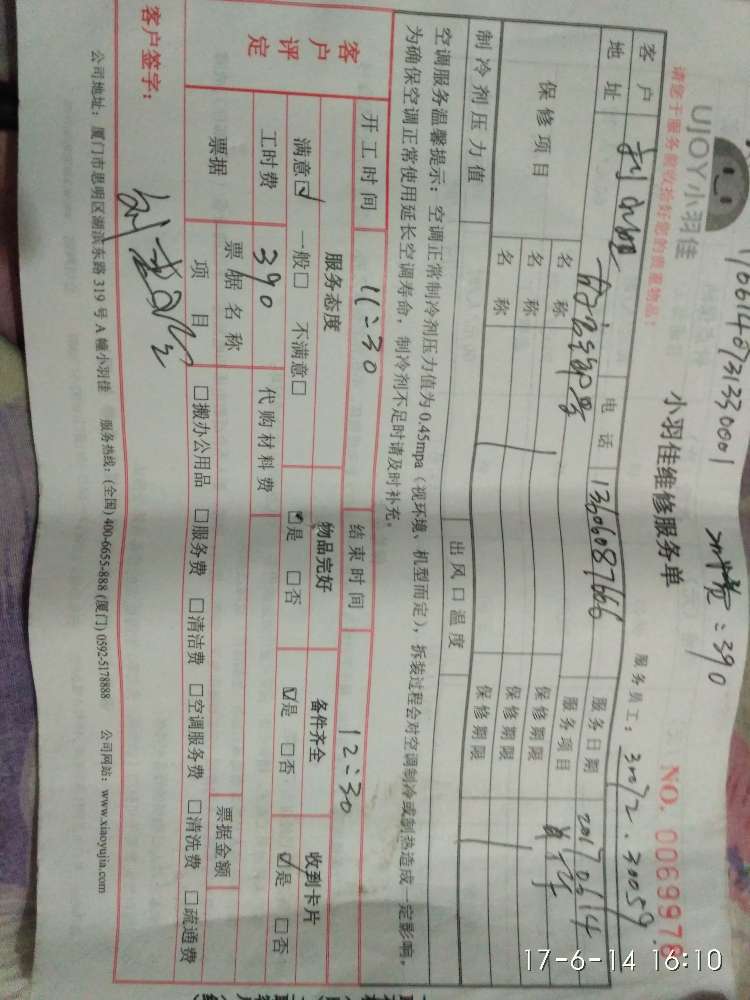 UJOY小羽佳
小羽佳维修服务单
NO. 0069978
请您于服务前收拾好您的贵重物品！
服务员工：30072.30059
客户 电话 13606087666 服务日期 20170614
地址 服务项目
保修项目 名称 保修期限
名称 保修期限
名称 保修期限
制冷剂压力值 出风口温度
空调服务温馨提示：空调正常制冷剂压力值为0.45mpa（视环境、机型而定），拆装过程会对空调制冷或制热造成一定影响。
为确保空调正常使用延长空调寿命，制冷剂不足时请及时补充。
开工时间 11:30 结束时间 12:30
客户评定 服务态度 物品完好 备件齐全 收到卡片
满意☑ 一般□ 不满意□ ☑是 □否 ☑是 □否 ☑是 □否
工时费 390 代购材料费
票据 票据名称 票据金额
项目 □搬办公用品 □服务费 □清洁费 □空调服务费 □清洗费 □疏通费
客户签字：
公司地址：厦门市思明区湖滨东路319号A幢小羽佳 服务热线：(全国) 400-6655-888 (厦门) 0592-5178888 公司网站：www.xiaoyujia.com
17-6-14 16:10